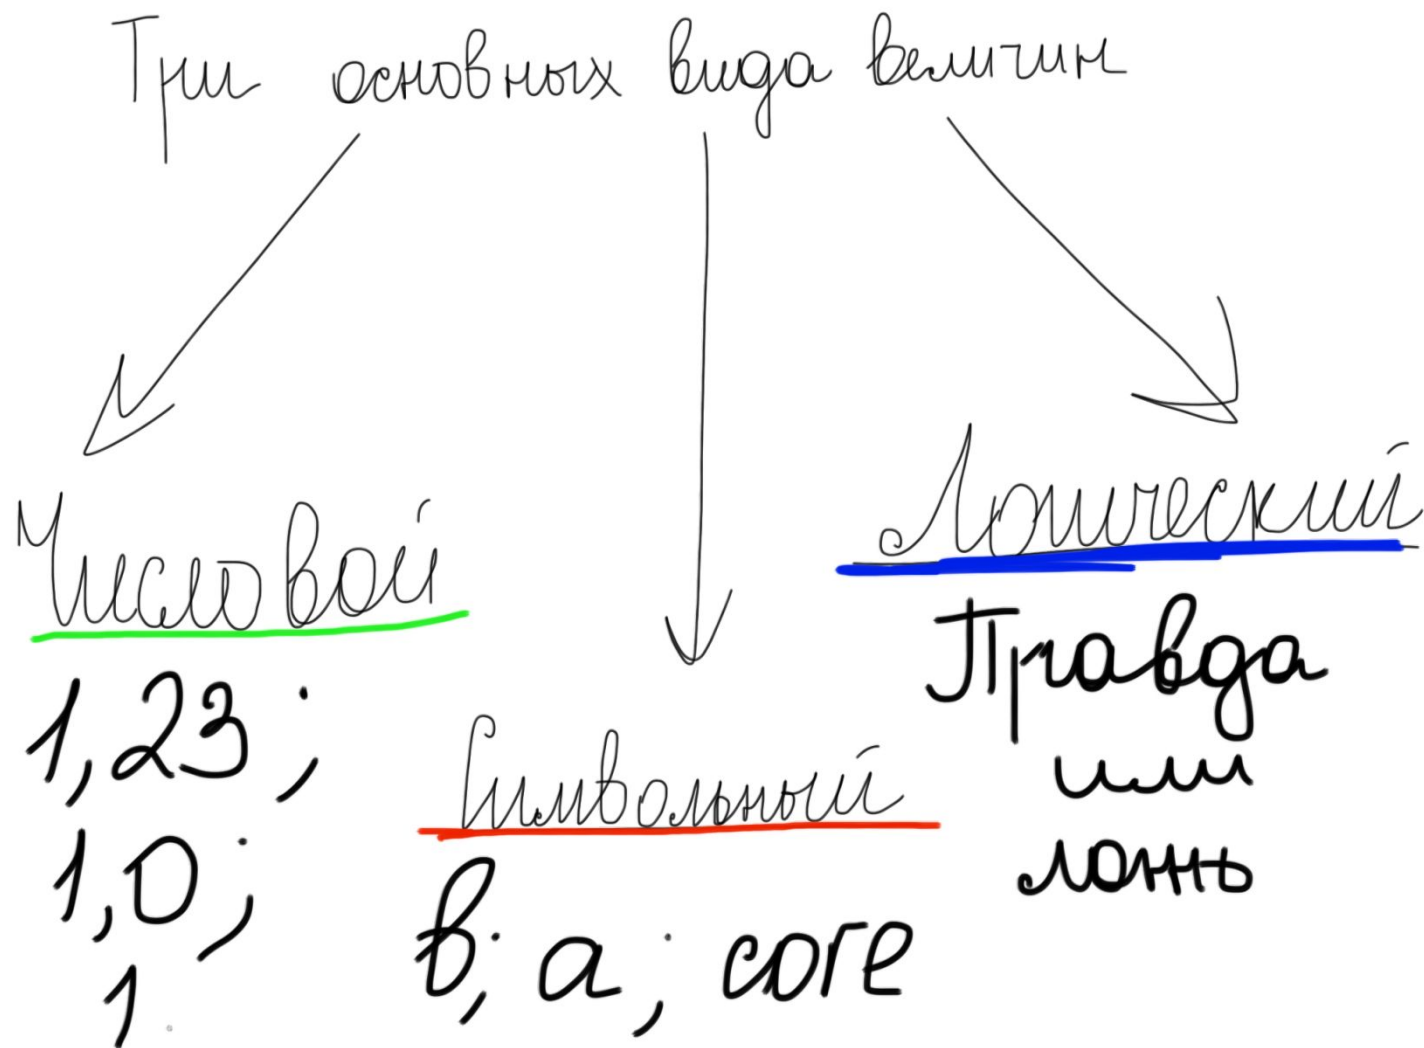 Три основных вида величин
Числовой
1,23;
1,0;
1
Символьный
в; а; core
Логический
Правда
или
ложь